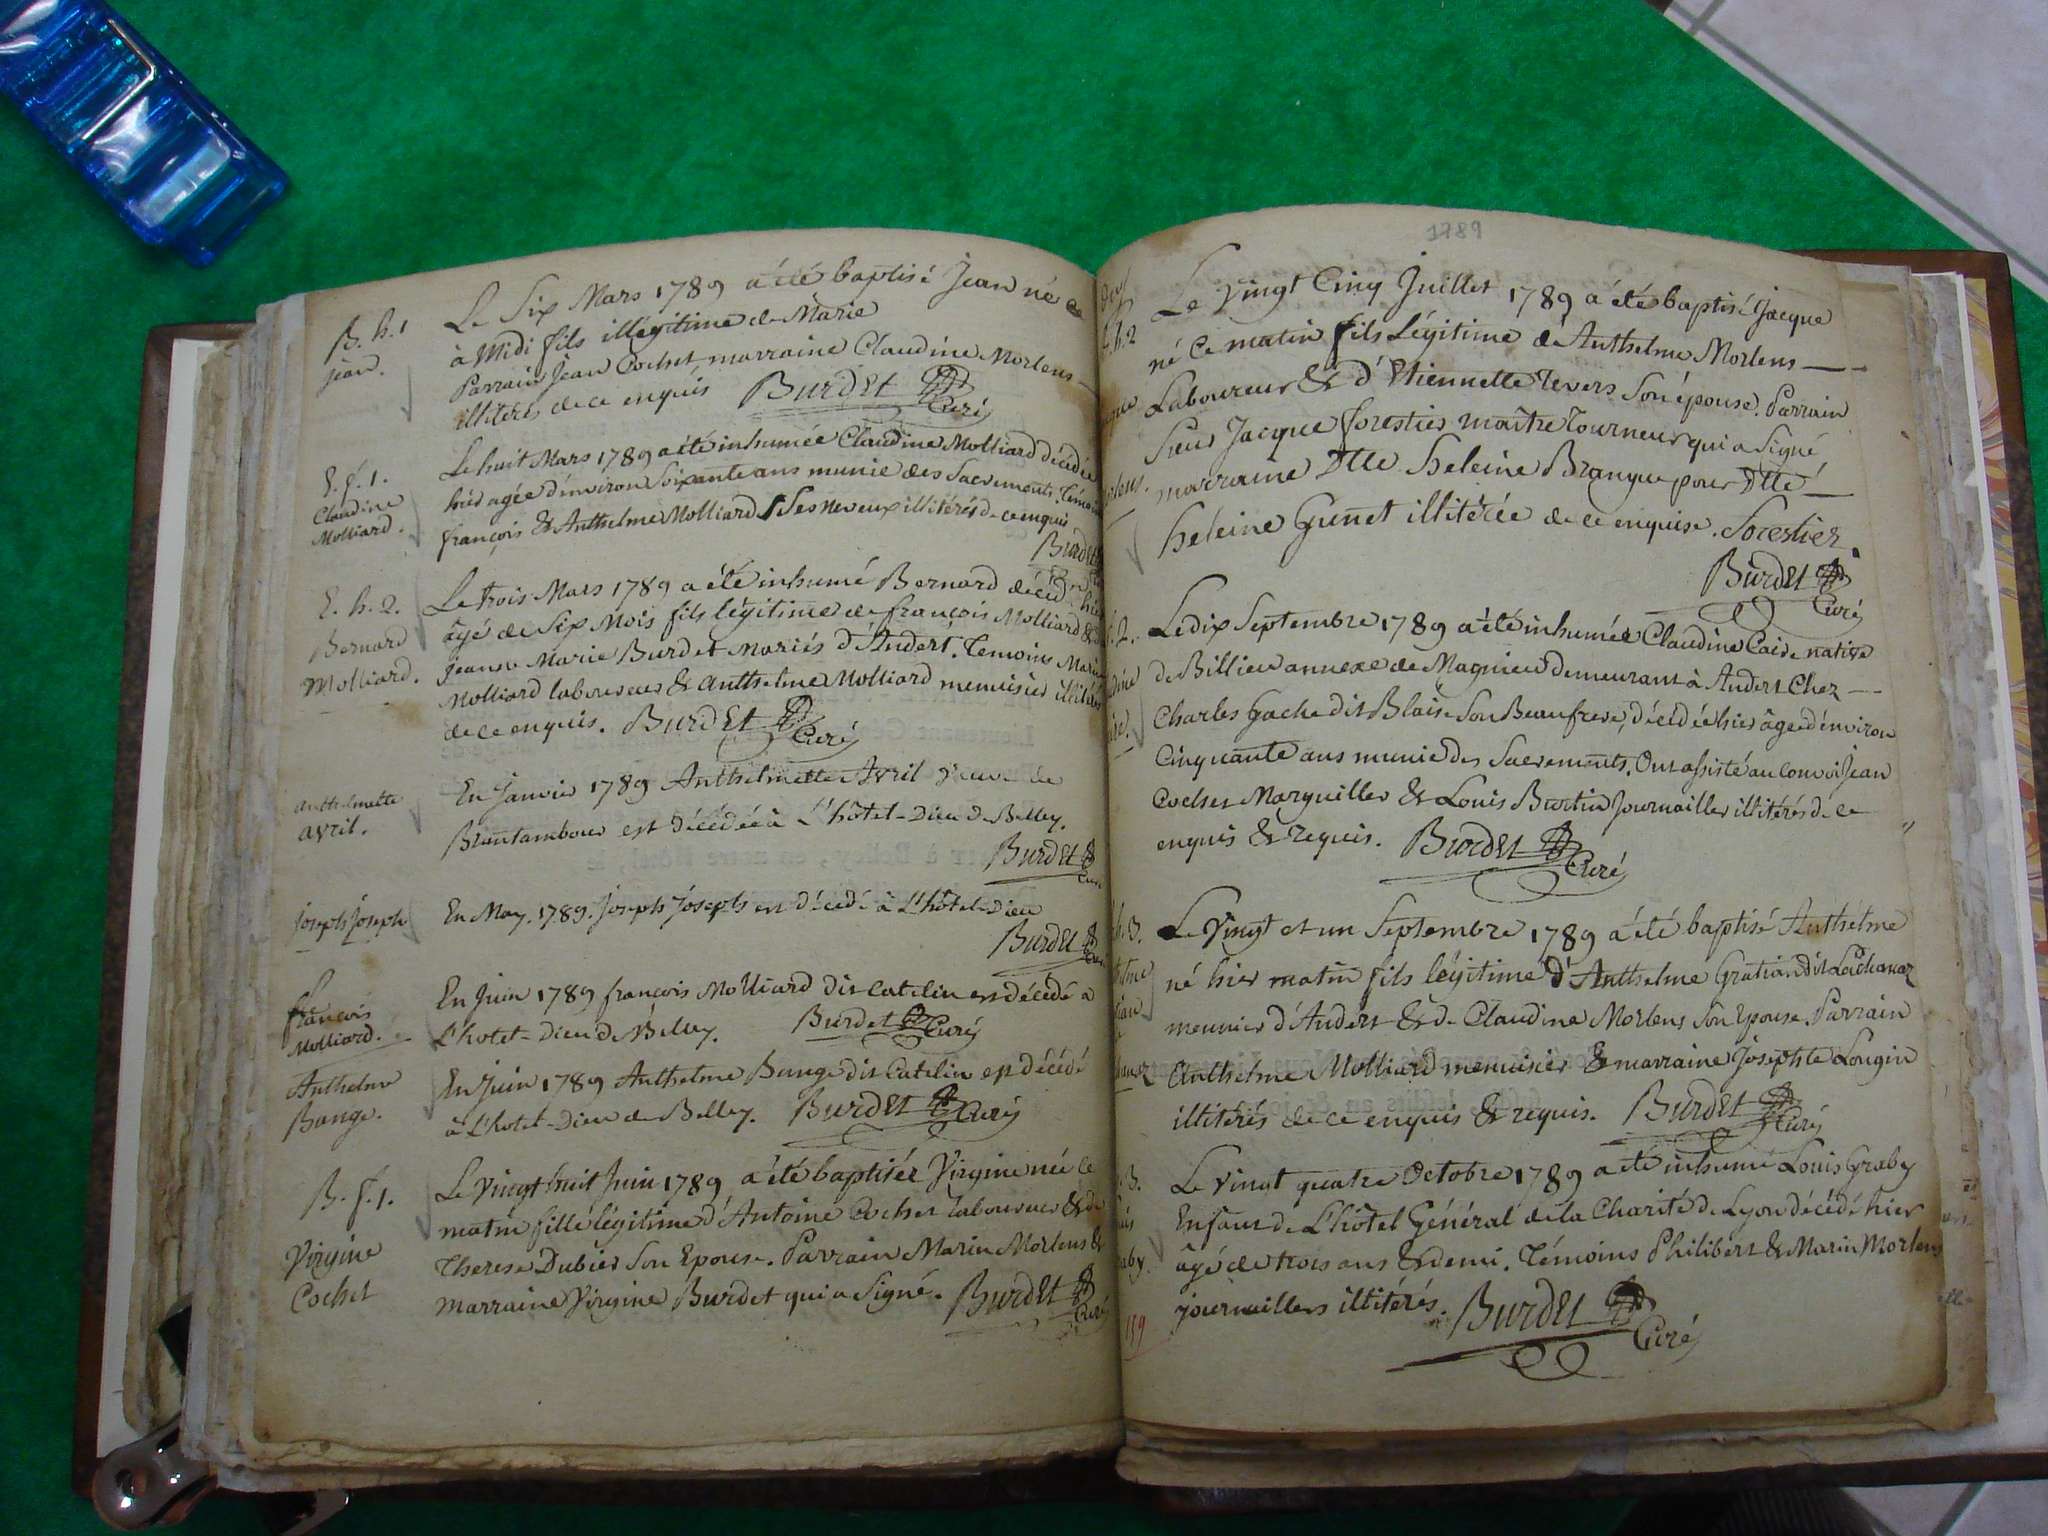 B. h. 1
jean.
Le Six Mars 1789 a été baptisé Jean né ce
à Midi fils illégitime de Marie
Parrain Jean Cochet marraine Claudine Mortens
illiterés de ce enquis Burdet Curé
E. f. 1.
Claudine
Molliard.
Le huit Mars 1789 a été inhumée Claudine Molliard décédée
hier agée d'environ Soixante ans munie des Sacrements. Témoins
françois & Anthelme Molliard Ses Neveux illitérés de ce enquis
Burdet
E. h. 2.
Bernard
Molliard.
Le trois Mars 1789 a été inhumé Bernard décédé hier
âgé de Six Mois fils légitime de françois Molliard &
Jeanne Marie Burdet Mariés d'Andert. Temoins Marin
Molliard laboureur & Anthelme Molliard menuisier illitérés
de ce enquis. Burdet Curé
Anthelmette
avril.
En Janvier 1789 Anthelmette Avril veuve de
Brantambour est décédée à L'hôtel-Dieu de Belley.
Burdet
Curé
Joseph Joseph
En May. 1789. Joseph Joseph est décédé à L'hôtel-Dieu
Burdet
Curé
françois
Molliard.
En Juin 1789 françois Molliard dit Catelin est décédé à
L'hotel-Dieu de Belley. Burdet Curé
Anthelme
Bange.
En Juin 1789 Anthelme Bange dit Catelin est décédé
à L'hotel-Dieu de Belley. Burdet Curé
B. f. 1.
Virgine
Cochet
Le Vingt huit Juin 1789 a été baptisée Virgine née ce
matin fille légitime d'Antoine Cochet Laboureur & de
Therese Dubier Son Epouse. Parrain Marin Mortens &
Marraine Virgine Burdet qui a Signé. Burdet Curé
1789
Le Vingt Cinq Juillet 1789 a été baptisé Jacque
né Ce matin fils Légitime de Anthelme Mortens
Laboureur & d'Etiennette Tevers Son épouse. Parrain
Sieur Jacque forestier maître Tourneur qui a Signé
marraine Dlle heleine Brangue pour Dlle
heleine Gunet illitérée de ce enquise. Forestier.
Burdet
Curé
Le dix Septembre 1789 a été inhumée Claudine Caide native
de Billieu annexe de Magnieu demeurant à Andert Chez
Charles Gache dit Blaise Son Beaufrere, décédée hier âgée d'environ
Cinquante ans munie des Sacrements. Ont assisté au convoi Jean
Cochet Marguiller & Louis Burtin Journaillier illitérés de ce
enquis & requis. Burdet Curé
Le Vingt et un Septembre 1789 a été baptisé Anthelme
né hier matin fils légitime d'Anthelme Gratian dit Lachanaz
meunier d'Andert & de Claudine Mortens Son Epouse. Parrain
Anthelme Molliard menuisier & marraine Josephte Longin
illitérés de ce enquis & requis. Burdet Curé
Le Vingt quatre Octobre 1789 a été inhumé Louis Graby
Enfant de L'hôtel Général de la Charité de Lyon décédé hier
âgé de trois ans & demi. Témoins Philibert & Marin Mortens
journaillers illitérés. Burdet
Curé
159